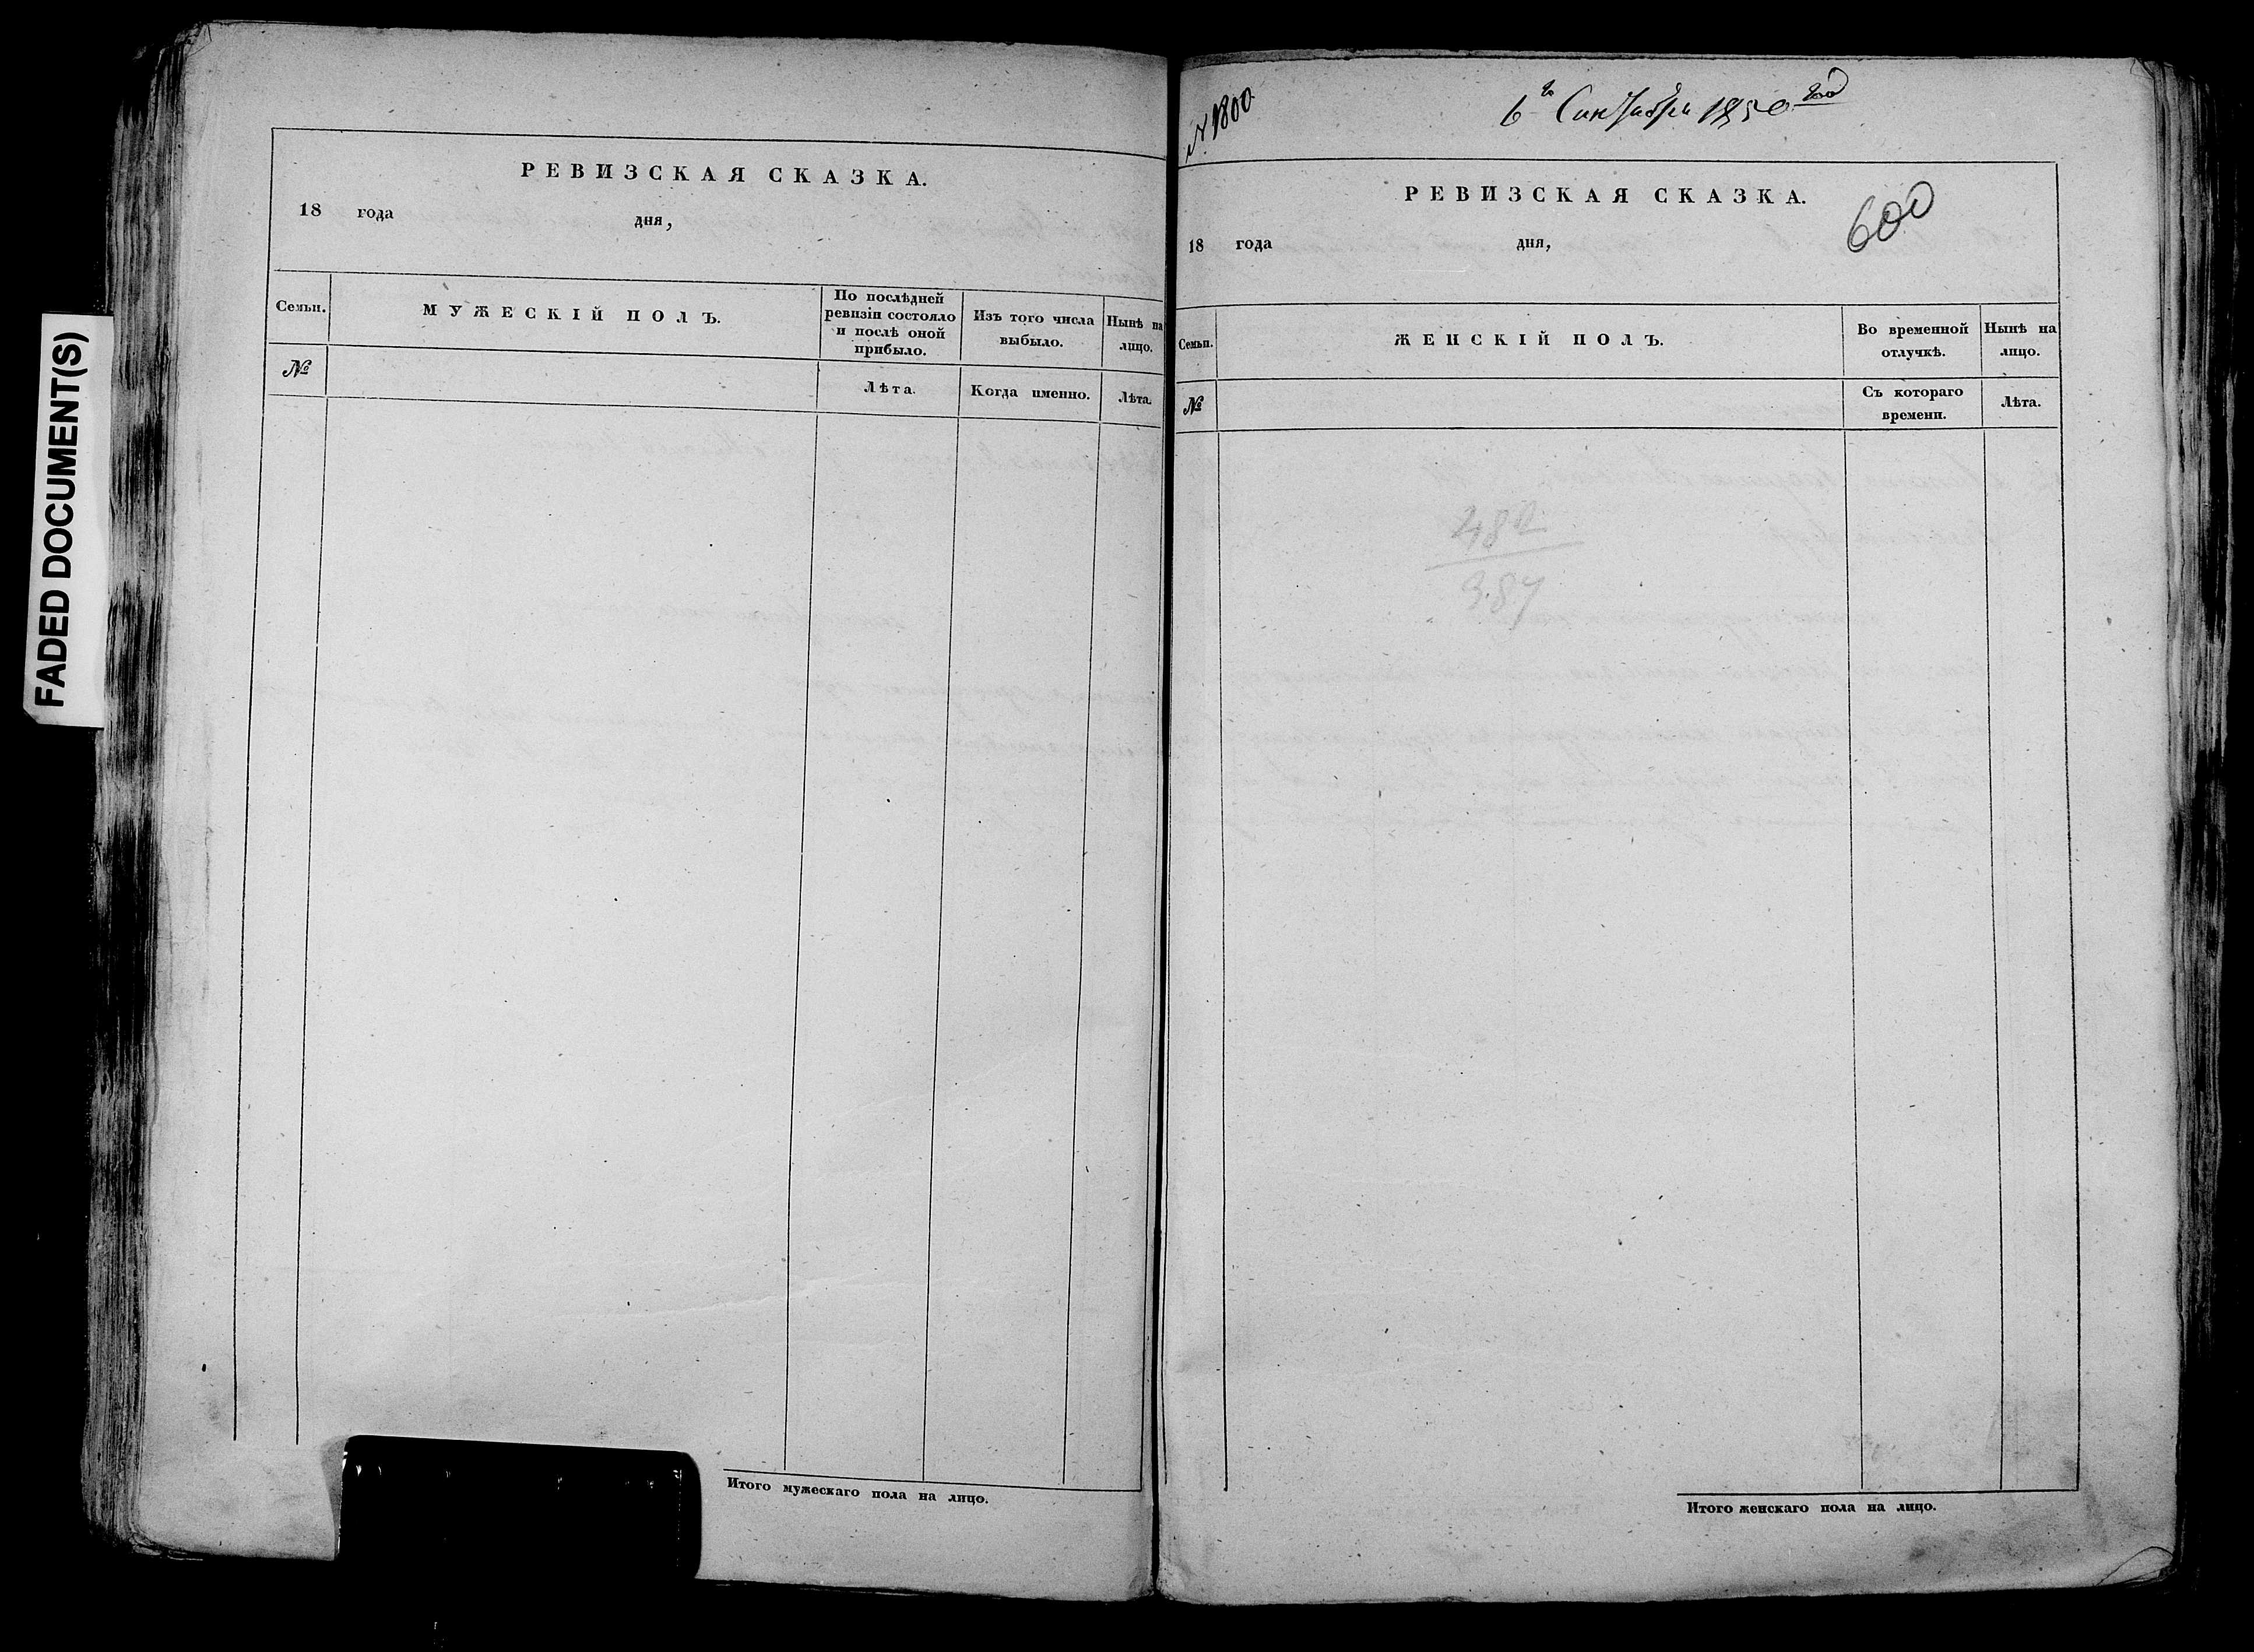 FADED DOCUMENT(S)
РЕВИЗСКАЯ СКАЗКА.
18 года дня,
Семьи.
МУЖЕСКІЙ ПОЛЪ.
По послѣдней
ревизіи состояло
и послѣ оной
прибыло.
Изъ того числа
выбыло.
Нынѣ на
лицо.
№
Лѣта.
Когда именно.
Лѣта.
Итого мужескаго пола на лицо.
№ 1800
6го Сентября 1850 год
РЕВИЗСКАЯ СКАЗКА.
600
18 года дня,
Семьи.
ЖЕНСКІЙ ПОЛЪ.
Во временной
отлучкѣ.
Нынѣ на
лицо.
№
Съ котораго
времени.
Лѣта.
Итого женскаго пола на лицо.